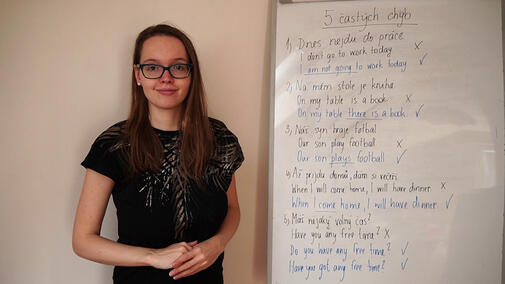 5 častých chyb
1) Dnes nejdu do práce
I don't go to work today ×
I am not going to work today ✓
2) Na mém stole je kniha
On my table is a book ×
On my table there is a book ✓
3) Náš syn hraje fotbal
Our son play football ×
Our son plays football ✓
4) Až přijdu domů, dám si večeři
When I will come home, I will have dinner ×
When I come home, I will have dinner ✓
5) Máš nějaký volný čas?
Have you any free time? ×
Do you have any free time? ✓
Have you got any free time? ✓